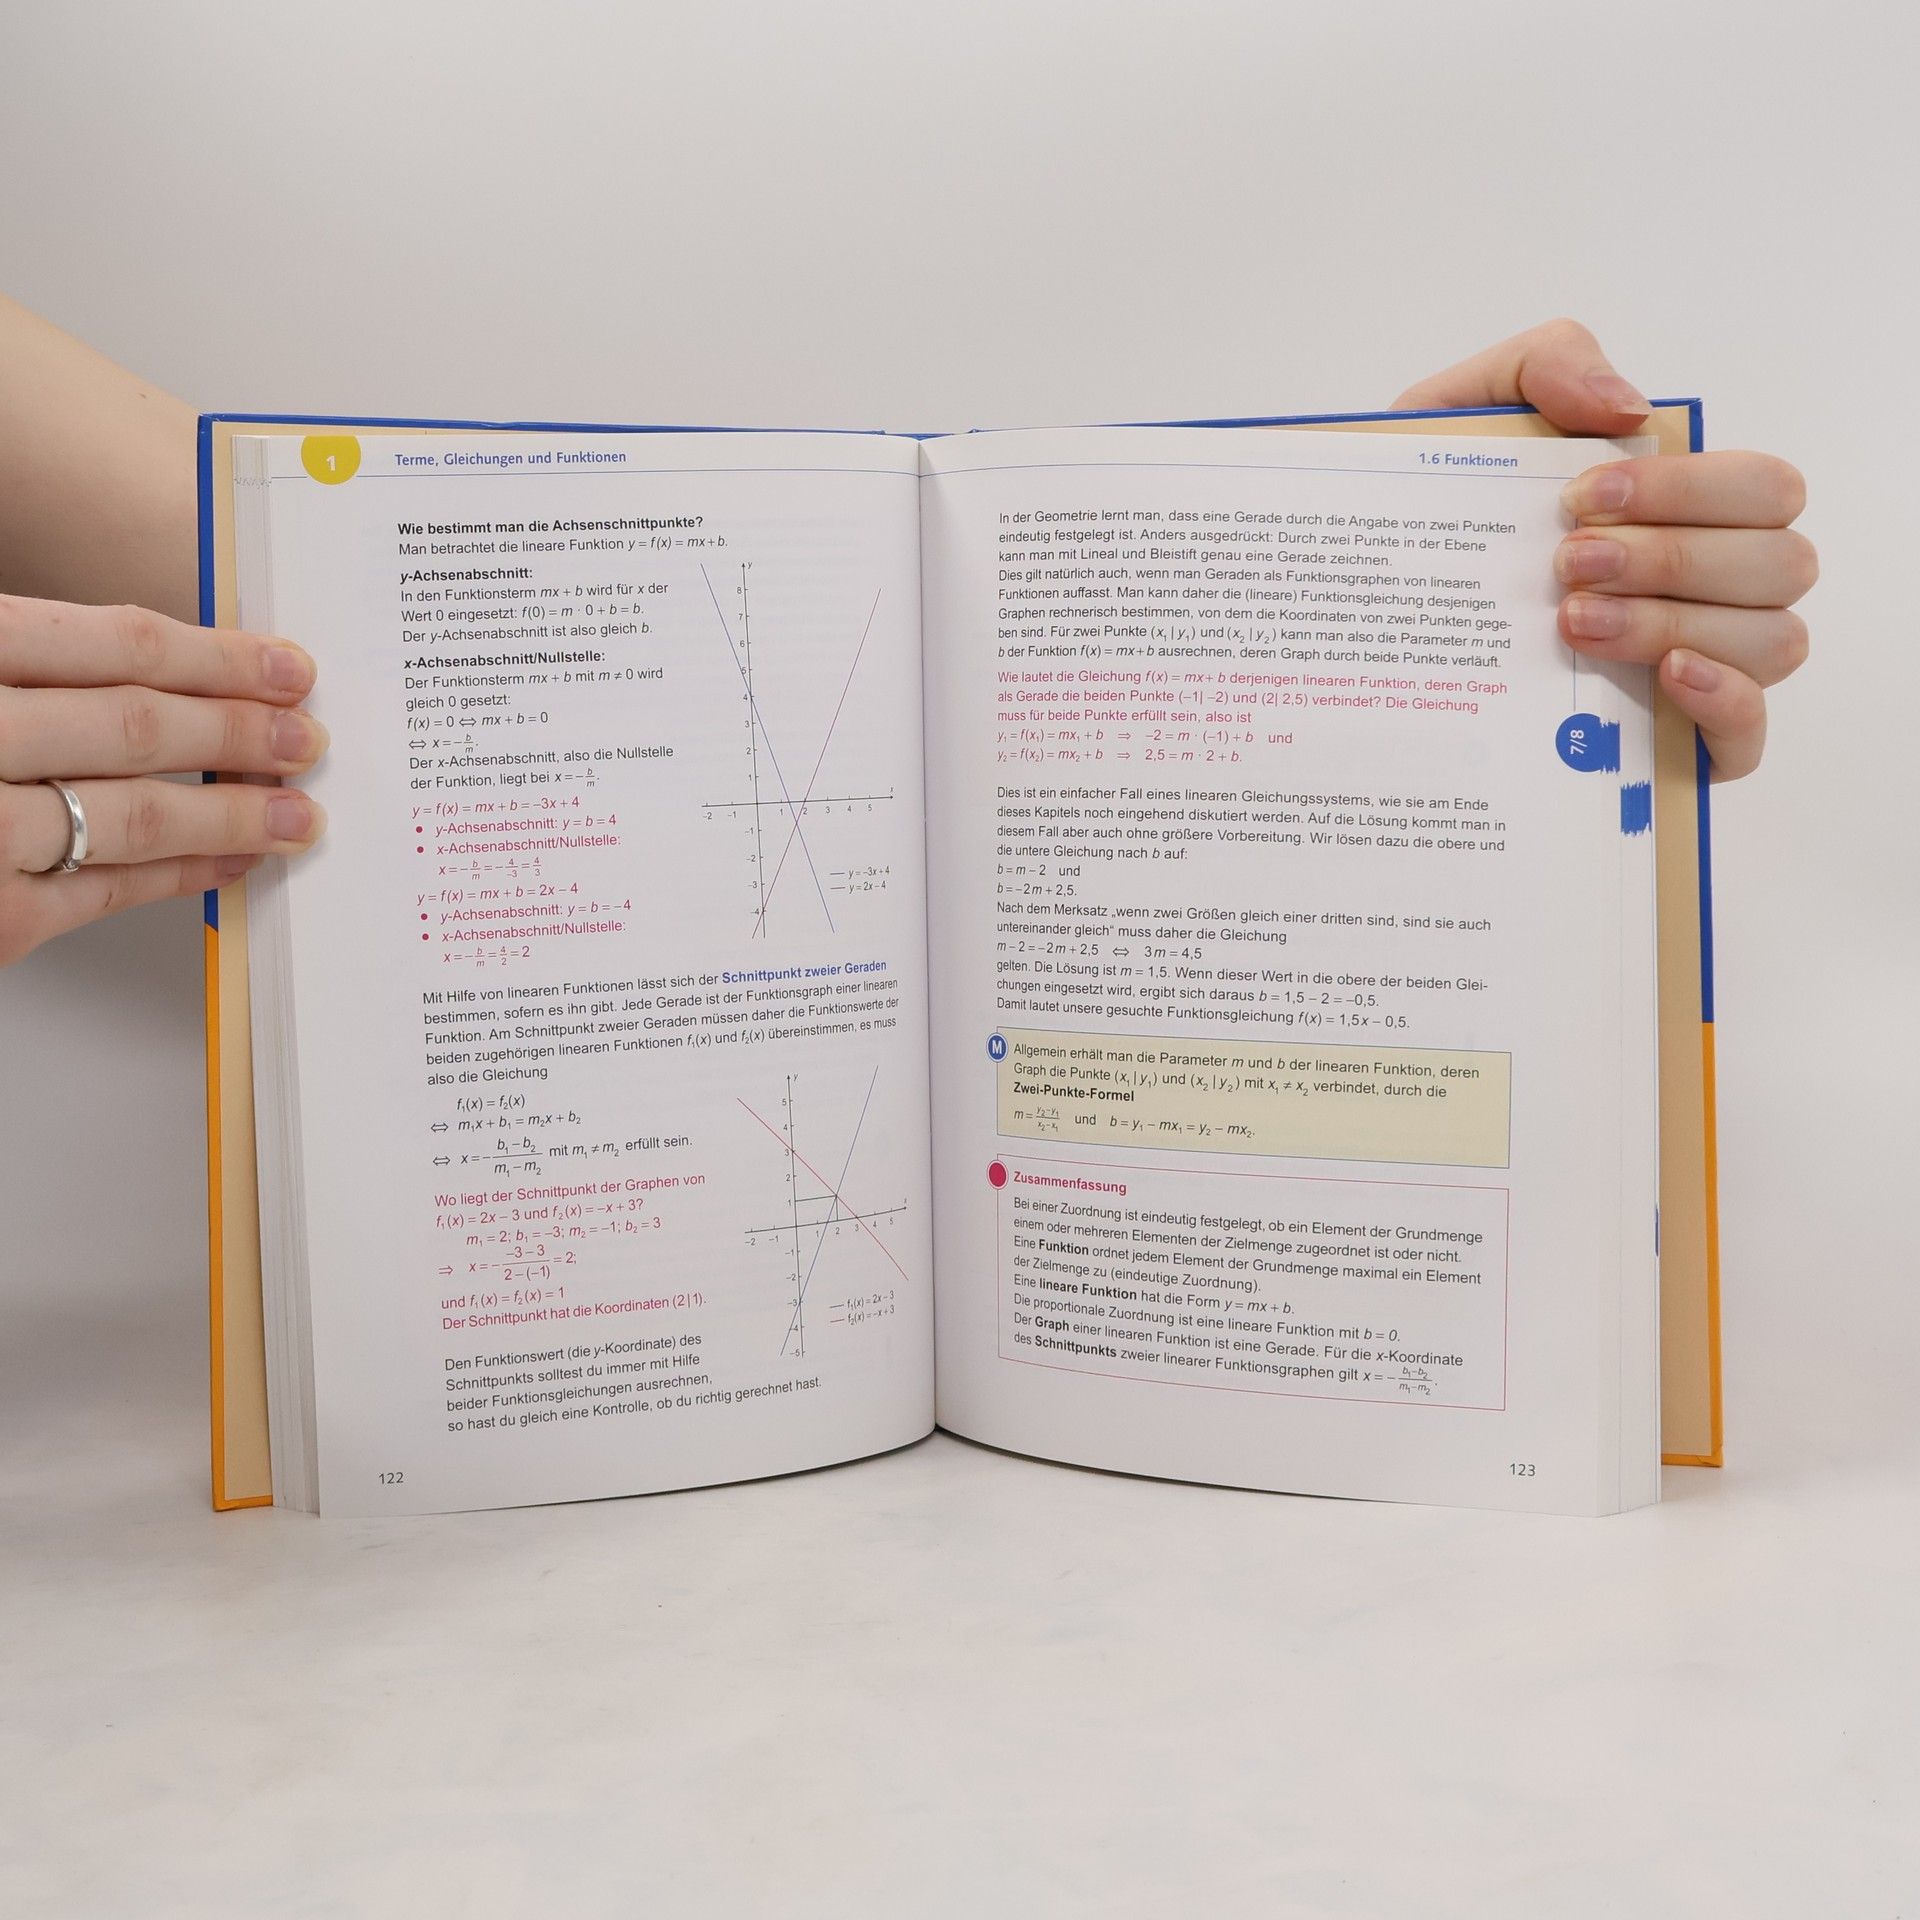 1
Terme, Gleichungen und Funktionen
Wie bestimmt man die Achsenschnittpunkte?
Man betrachtet die lineare Funktion y = f(x) = mx + b.
y-Achsenabschnitt:
In den Funktionsterm mx + b wird für x der
Wert 0 eingesetzt: f(0) = m · 0 + b = b.
Der y-Achsenabschnitt ist also gleich b.
x-Achsenabschnitt/Nullstelle:
Der Funktionsterm mx + b mit m ≠ 0 wird
gleich 0 gesetzt:
f(x) = 0 ⇔ mx + b = 0
⇔ x = −b/m.
Der x-Achsenabschnitt, also die Nullstelle
der Funktion, liegt bei x = −b/m.
y = f(x) = mx + b = −3x + 4
• y-Achsenabschnitt: y = b = 4
• x-Achsenabschnitt/Nullstelle:
x = −b/m = −4/−3 = 4/3
y = f(x) = mx + b = 2x − 4
• y-Achsenabschnitt: y = b = −4
• x-Achsenabschnitt/Nullstelle:
x = −b/m = 4/2 = 2
y
8
7
6
5
4
3
2
1
−2 −1 1 2 3 4 5 x
−1
−2
−3
−4
y = −3x + 4
y = 2x − 4
Mit Hilfe von linearen Funktionen lässt sich der Schnittpunkt zweier Geraden
bestimmen, sofern es ihn gibt. Jede Gerade ist der Funktionsgraph einer linearen
Funktion. Am Schnittpunkt zweier Geraden müssen daher die Funktionswerte der
beiden zugehörigen linearen Funktionen f₁(x) und f₂(x) übereinstimmen, es muss
also die Gleichung
f₁(x) = f₂(x)
⇔ m₁x + b₁ = m₂x + b₂
⇔ x = −(b₁ − b₂)/(m₁ − m₂) mit m₁ ≠ m₂ erfüllt sein.
Wo liegt der Schnittpunkt der Graphen von
f₁(x) = 2x − 3 und f₂(x) = −x + 3?
m₁ = 2; b₁ = −3; m₂ = −1; b₂ = 3
⇒ x = −(−3 − 3)/(2 − (−1)) = 2;
und f₁(x) = f₂(x) = 1
Der Schnittpunkt hat die Koordinaten (2|1).
y
5
4
3
2
1
−2 −1 1 2 3 4 5 x
−1
−2
−3
−4
−5
f₁(x) = 2x − 3
f₂(x) = −x + 3
Den Funktionswert (die y-Koordinate) des
Schnittpunkts solltest du immer mit Hilfe
beider Funktionsgleichungen ausrechnen,
so hast du gleich eine Kontrolle, ob du richtig gerechnet hast.
122
1.6 Funktionen
In der Geometrie lernt man, dass eine Gerade durch die Angabe von zwei Punkten
eindeutig festgelegt ist. Anders ausgedrückt: Durch zwei Punkte in der Ebene
kann man mit Lineal und Bleistift genau eine Gerade zeichnen.
Dies gilt natürlich auch, wenn man Geraden als Funktionsgraphen von linearen
Funktionen auffasst. Man kann daher die (lineare) Funktionsgleichung desjenigen
Graphen rechnerisch bestimmen, von dem die Koordinaten von zwei Punkten gege-
ben sind. Für zwei Punkte (x₁|y₁) und (x₂|y₂) kann man also die Parameter m und
b der Funktion f(x) = mx + b ausrechnen, deren Graph durch beide Punkte verläuft.
Wie lautet die Gleichung f(x) = mx + b derjenigen linearen Funktion, deren Graph
als Gerade die beiden Punkte (−1| −2) und (2| 2,5) verbindet? Die Gleichung
muss für beide Punkte erfüllt sein, also ist
y₁ = f(x₁) = mx₁ + b ⇒ −2 = m · (−1) + b und
y₂ = f(x₂) = mx₂ + b ⇒ 2,5 = m · 2 + b.
7/8
Dies ist ein einfacher Fall eines linearen Gleichungssystems, wie sie am Ende
dieses Kapitels noch eingehend diskutiert werden. Auf die Lösung kommt man in
diesem Fall aber auch ohne größere Vorbereitung. Wir lösen dazu die obere und
die untere Gleichung nach b auf:
b = m − 2 und
b = −2m + 2,5.
Nach dem Merksatz „wenn zwei Größen gleich einer dritten sind, sind sie auch
untereinander gleich“ muss daher die Gleichung
m − 2 = −2m + 2,5 ⇔ 3m = 4,5
gelten. Die Lösung ist m = 1,5. Wenn dieser Wert in die obere der beiden Glei-
chungen eingesetzt wird, ergibt sich daraus b = 1,5 − 2 = −0,5.
Damit lautet unsere gesuchte Funktionsgleichung f(x) = 1,5x − 0,5.
M
Allgemein erhält man die Parameter m und b der linearen Funktion, deren
Graph die Punkte (x₁|y₁) und (x₂|y₂) mit x₁ ≠ x₂ verbindet, durch die
Zwei-Punkte-Formel
m = (y₂−y₁)/(x₂−x₁) und b = y₁ − mx₁ = y₂ − mx₂.
Zusammenfassung
Bei einer Zuordnung ist eindeutig festgelegt, ob ein Element der Grundmenge
einem oder mehreren Elementen der Zielmenge zugeordnet ist oder nicht.
Eine Funktion ordnet jedem Element der Grundmenge maximal ein Element
der Zielmenge zu (eindeutige Zuordnung).
Eine lineare Funktion hat die Form y = mx + b.
Die proportionale Zuordnung ist eine lineare Funktion mit b = 0.
Der Graph einer linearen Funktion ist eine Gerade. Für die x-Koordinate
des Schnittpunkts zweier linearer Funktionsgraphen gilt x = −(b₁−b₂)/(m₁−m₂).
123